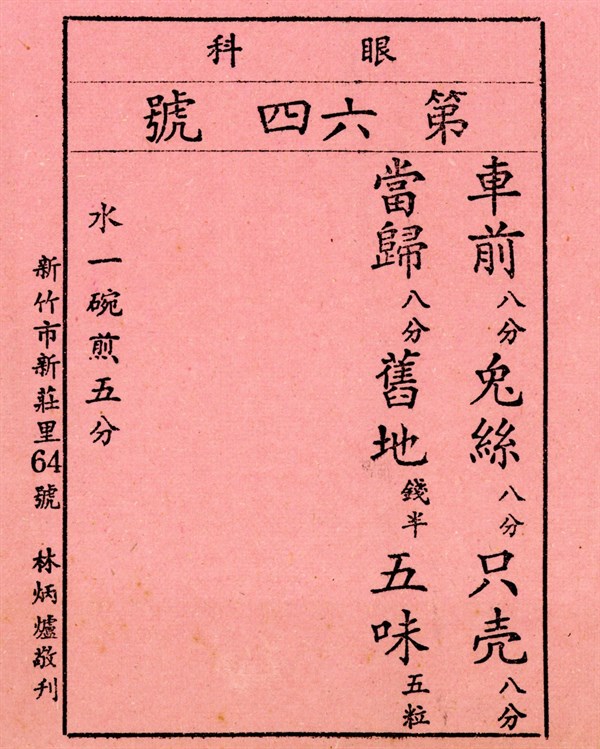 眼科
第六四號
車前八分兔絲八分只壳八分
當歸八分舊地錢半五味五粒
水一碗煎五分
新竹市新莊里64號 林炳爐敬刊